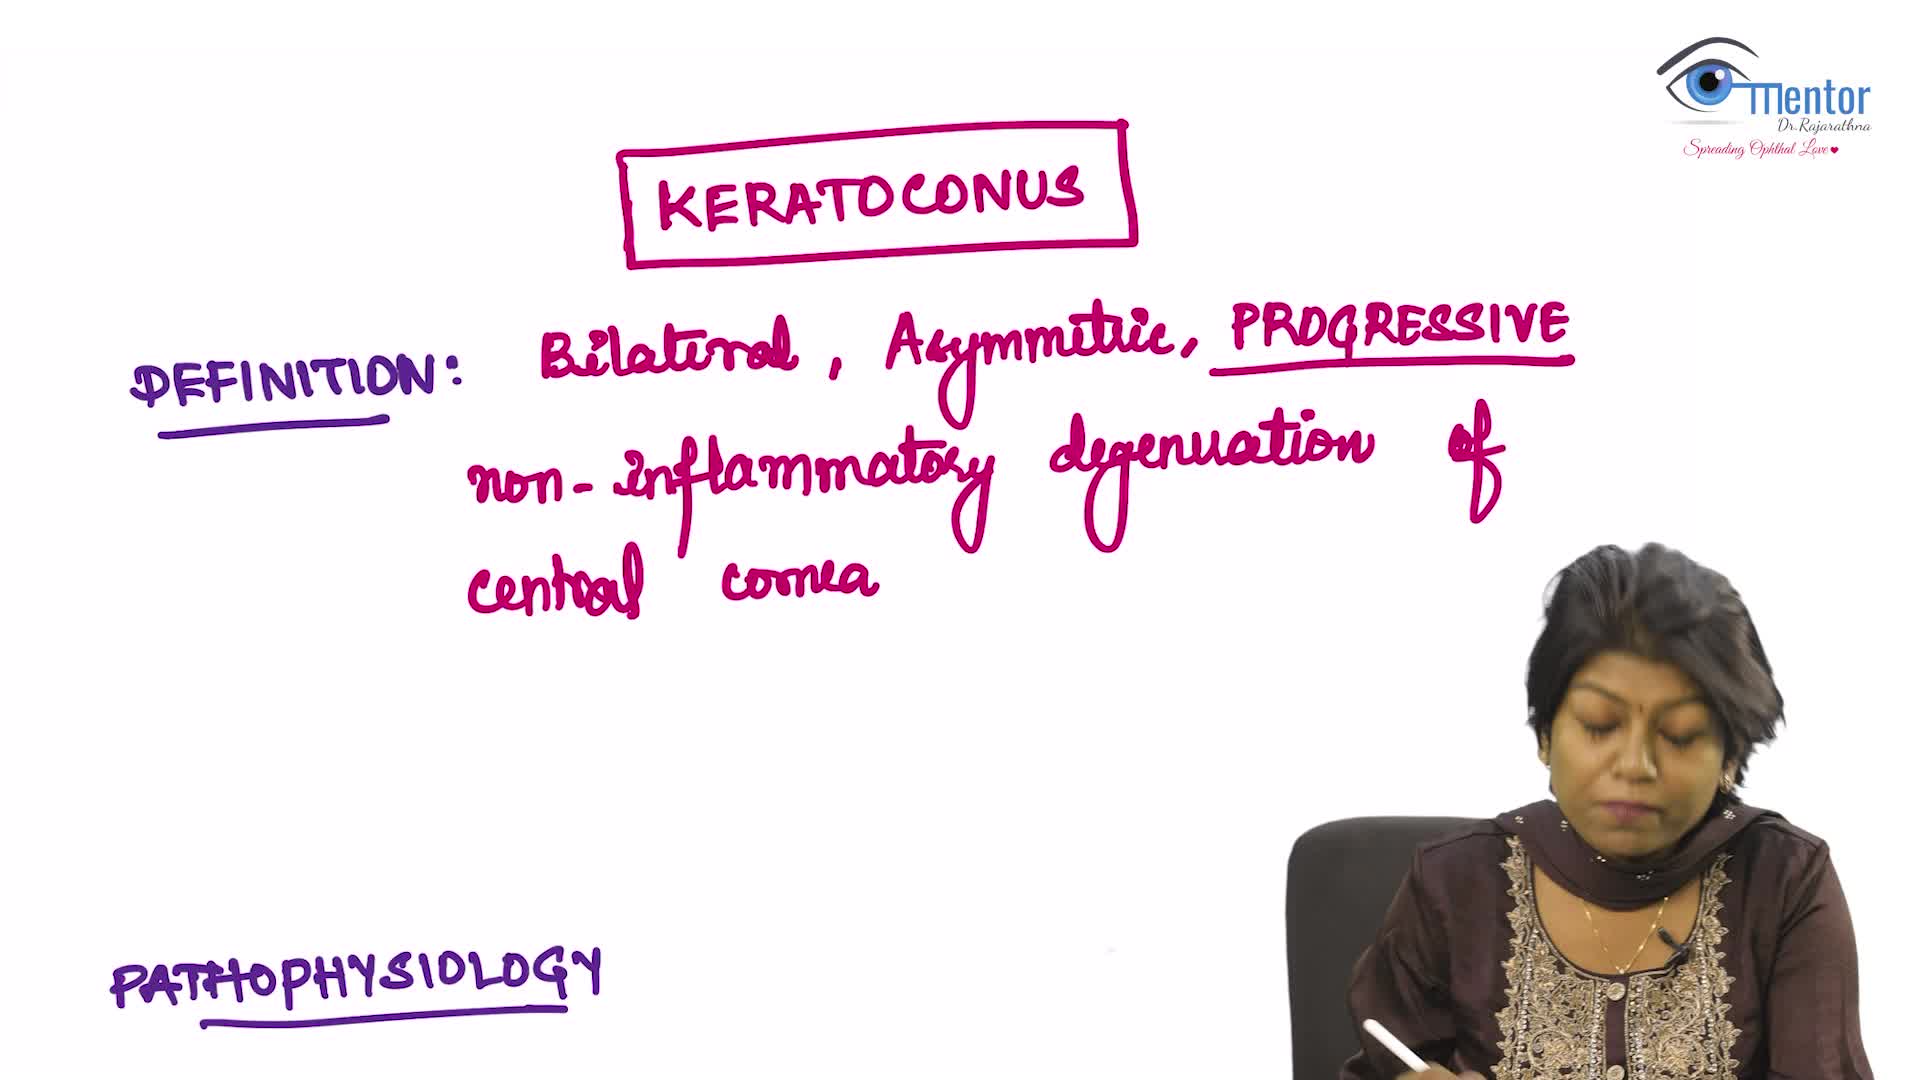 mentor
Dr.Rajarathna
Spreading Ophthal Love
KERATOCONUS
DEFINITION: Bilateral, Asymmetric, PROGRESSIVE
non-inflammatory degeneration of
central cornea
PATHOPHYSIOLOGY